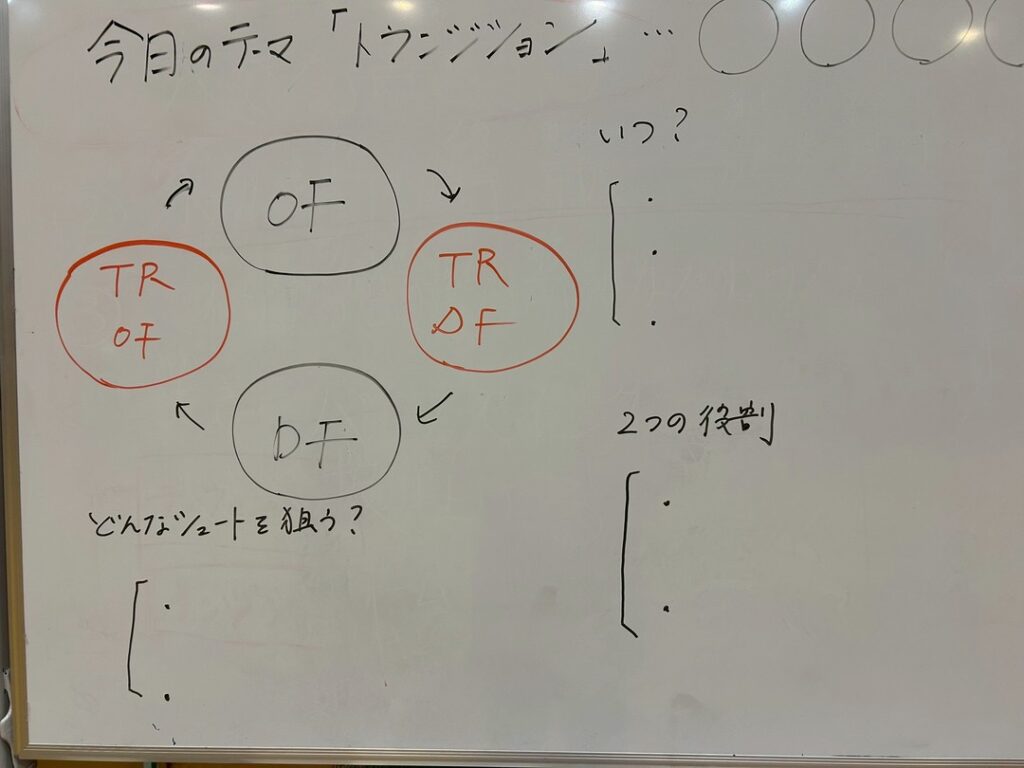 今日のテーマ「トランジション」…
OF
TR
OF
TR
DF
DF
いつ?
2つの役割
どんなシュートを狙う?